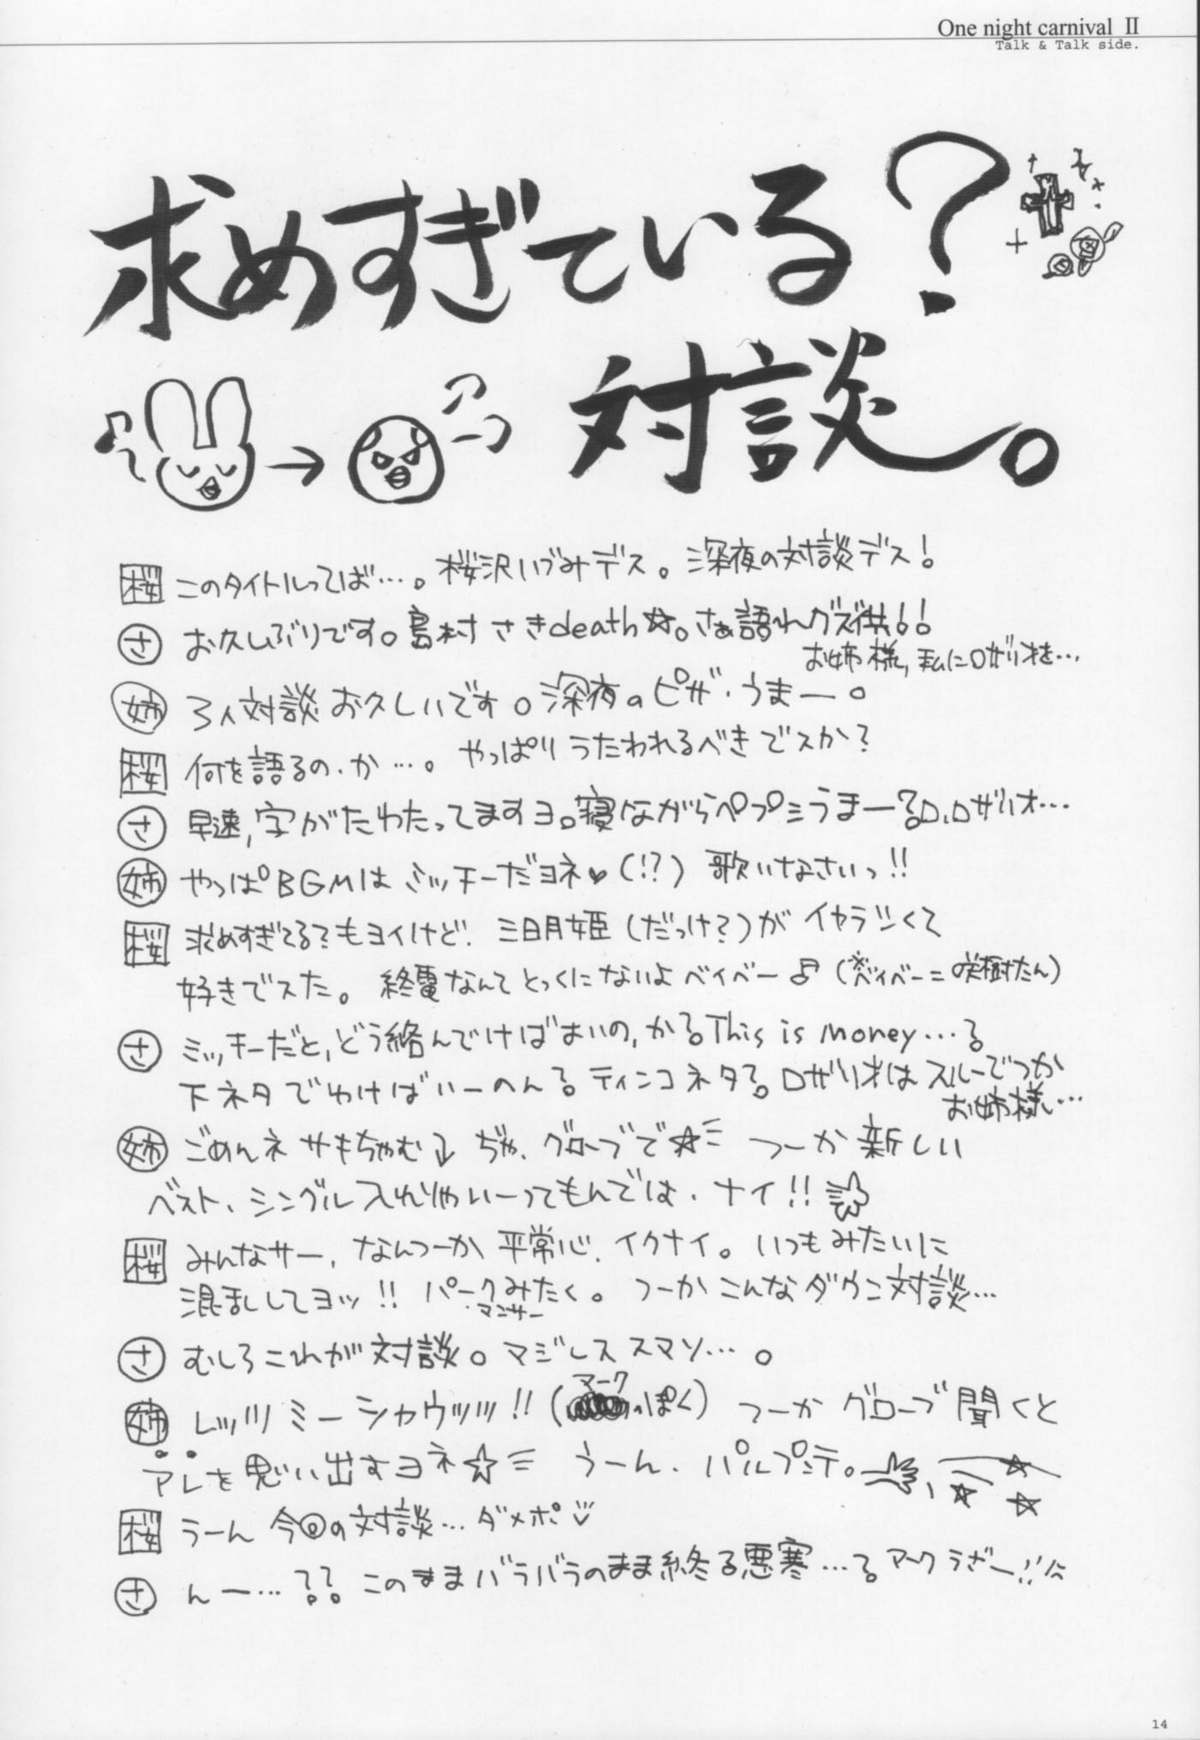 One night carnival II
Talk & Talk side.
求めすぎている?
対談。
桜 このタイトルってば…。桜沢いづみデス。深夜の対談デス!
さ お久しぶりです。島村さきdeath☆。さぁ語れグズ共!!
お姉様,私にロザリオを…
姉 3人対談お久しいです。深夜のピザ、うまー。
桜 何を語るの、か…。やっぱりうたわれるべきでスか?
さ 早速,字がたわたってますヨ。寝ながらペプシうまー?ロ,ロザリオ…
姉 やっぱBGMはミッチーだヨネ♥(!?) 歌いなさいっ!!
桜 求めすぎてる?もヨイけど、三日月姫(だっけ?)がイヤラシくて
好きでスた。終電なんてとっくにないよベイベー♪(※ベイベー=咲樹たん)
さ ミッキーだと,どう絡んでけばよいの,か?This is money…?
下ネタでゆけばいーのん?ティンコネタ?ロザリオはスルーでつか
お姉様…
姉 ごめんネサキちゃむ↓ ぢゃ、グローブで☆ つーか新しい
ベスト、シングル入れりゃいーってもんでは、ナイ!!
桜 みんなサー、なんつーか平常心、イクナイ。いつもみたいに
混乱してヨッ!! パークみたく。つーかこんなダウン対談…
マンサー
さ むしろこれが対談。マジレススマソ…。
姉 レッツミーシャウッッ!!(マークっぽく) つーかグローブ聞くと
アレを思い出すヨネ☆ うーん、パルプンテ。
桜 うーん今回の対談…ダメポ
さ んー…??このままバラバラのまま終る悪寒…?マークラざー!!
14